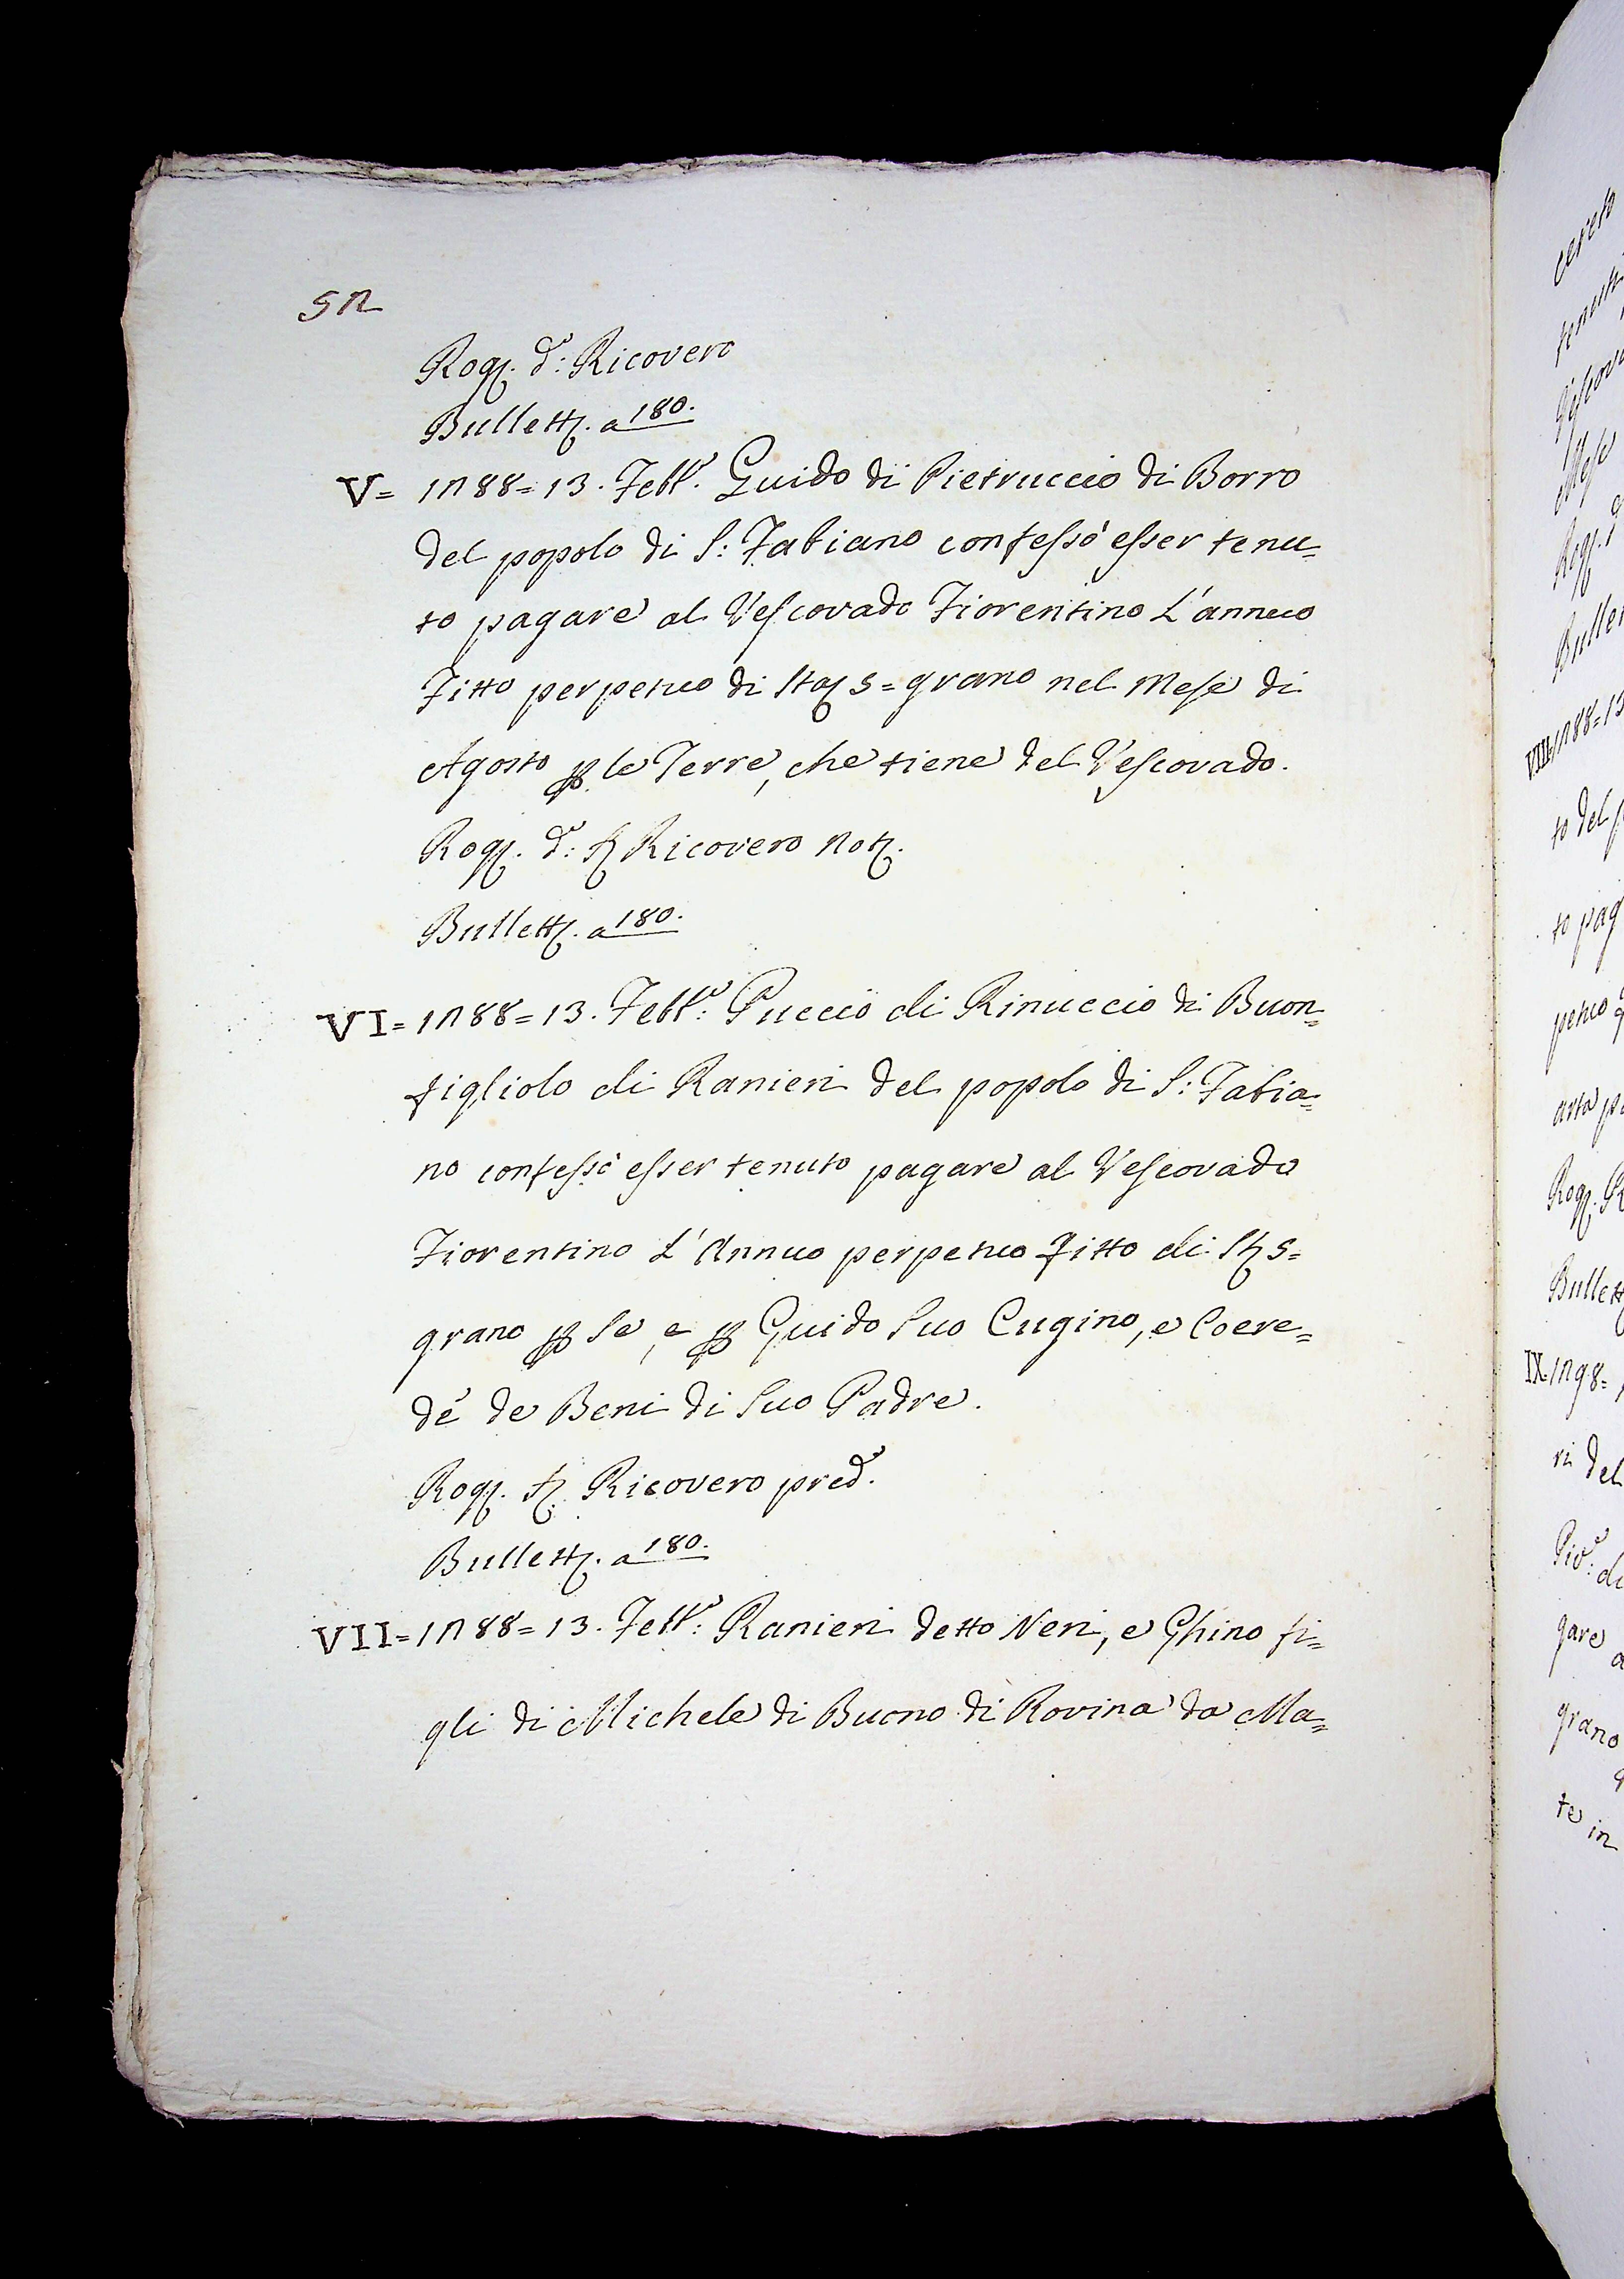 52
Rogò d.º: Ricovero
Bullett. a 180.
V= 1288=13. Febb.º Guido di Pietruccio di Borro
del popolo di S: Fabiano confessò esser tenu=
to pagare al Vescovado Fiorentino L'annuo
Fitto perpetuo di Sta 5=grano nel Mese di
Agosto p le Terre, che tiene del Vescovado.
Rog. d.º: S Ricovero Not.
Bullett. a 180.
VI= 1288=13. Febb.º: Puccio di Rinuccio di Buon=
figliolo di Ranieri del popolo di S: Fabia=
no confessò esser tenuto pagare al Vescovado
Fiorentino L'Annuo perpetuo fitto di St 5=
grano p Se, e p Guido Suo Cugino, e Coere=
de de Beni di Suo Padre.
Rog. S. Ricovero pred.º
Bullett. a 180.
VII= 1288=13. Febb.º: Ranieri detto Neri, e Ghino fi=
gli di Michele di Buono di Rovina da Ma=
cereto
Vescova
Mese
Rog.
Bullet
VIII= 1288=13
to del p
to pag
petuo
Rog. R
Bullett
IX= 1298=
ri del
Piv.e: di
gare a
grano
te in